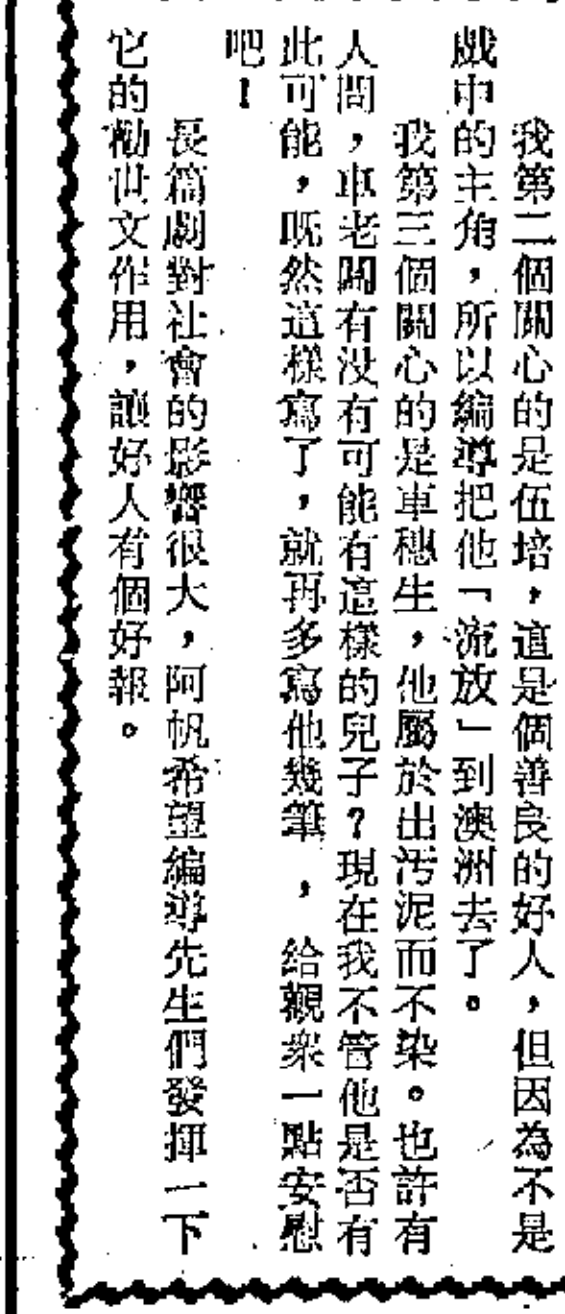 我第二個關心的是伍培，這是個善良的好人，但因為不是
戲中的主角，所以編導把他「流放」到澳洲去了。
我第三個關心的是車穗生，他屬於出污泥而不染。也許有
人問，車老闆有沒有可能有這樣的兒子？現在我不管他是否有
此可能，既然這樣寫了，就再多寫他幾筆，給觀衆一點安慰
吧！
長篇劇對社會的影響很大，阿帆希望編導先生們發揮一下
它的勸世文作用，讓好人有個好報。